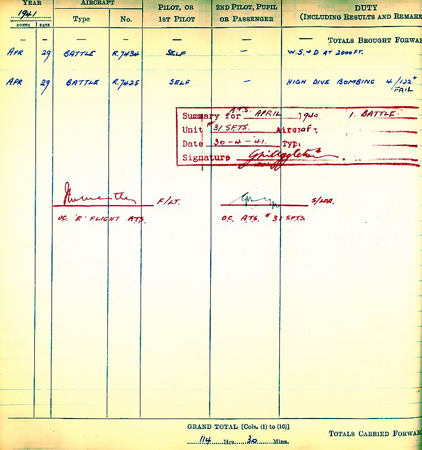 YEAR AIRCRAFT PILOT, OR 2ND PILOT, PUPIL DUTY
1941 Type No. 1ST PILOT OR PASSENGER (INCLUDING RESULTS AND REMAR
MONTH DATE
— — — — — — TOTALS BROUGHT FORWAR
APR 29 BATTLE R.7434 SELF — W.S. & D AT 2000 FT.
APR 29 BATTLE R.7425 SELF — HIGH DIVE BOMBING 4/132°
FAIL
A.T.S.
Summary for APRIL 1940 1. BATTLE.
Unit #31 SFTS. Aircraft
Date 30-4-41. Type
Signature
F/LT. S/LDR.
OC. 'E' FLIGHT ATS. O.C. ATS. #31 SFTS
GRAND TOTAL [Cols. (1) to (10)]
114 Hrs. 30 Mins. TOTALS CARRIED FORWAR